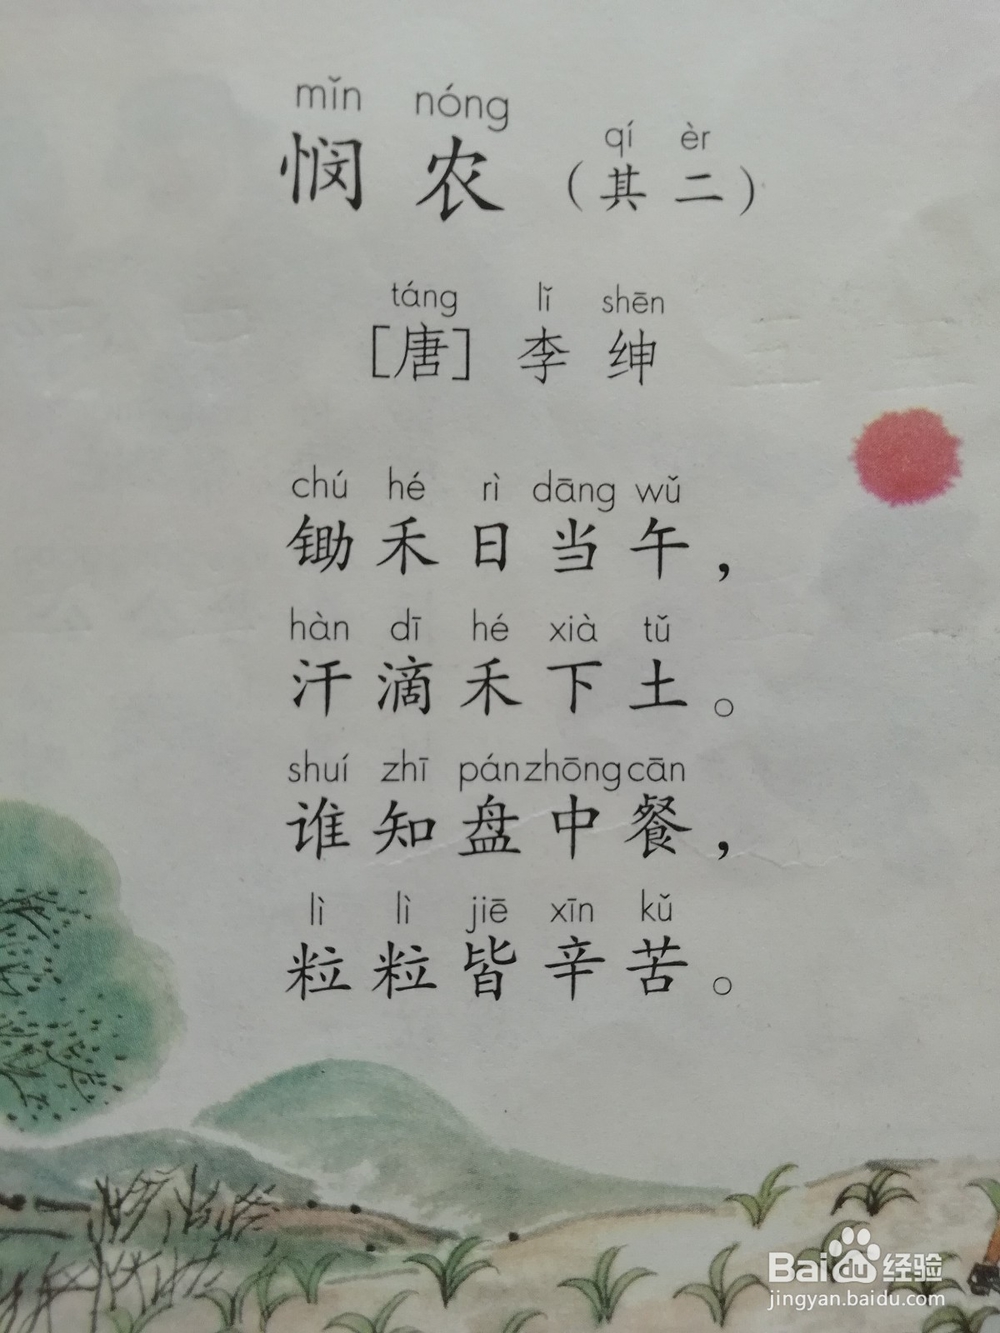 mǐn nóng qí èr
悯农（其二）
táng lǐ shēn
［唐］李绅
chú hé rì dāng wǔ
锄禾日当午，
hàn dī hé xià tǔ
汗滴禾下土。
shuí zhī pán zhōng cān
谁知盘中餐，
lì lì jiē xīn kǔ
粒粒皆辛苦。
Baidu经验
jingyan.baidu.com